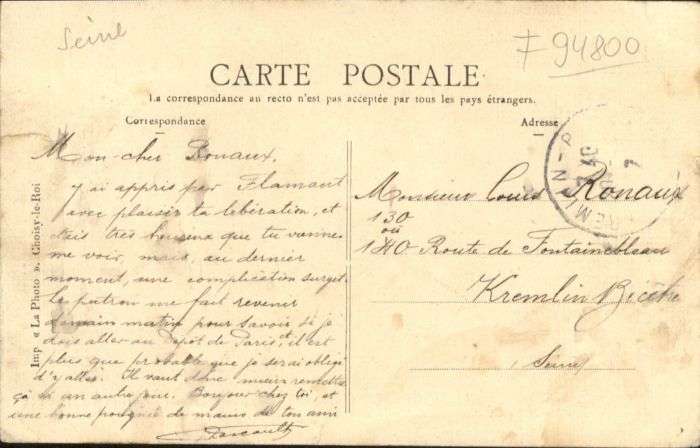 Seine
F 94800
CARTE POSTALE
La correspondance au recto n'est pas acceptée par tous les pays étrangers.
Correspondance
Adresse
Imp. « La Photo ». Choisy-le-Roi
Mon cher Ronaux,
J'ai appris par Flamant
avec plaisir ta libération, et
étais très heureux que tu viennes
me voir, mais, au dernier
moment, une complication surgit.
le patron me fait revenir
demain matin pour savoir si je
dois aller au Dépot de Paris, et il est
plus que probable que je serai obligé
d'y aller. Il vaut donc mieux remettre
ça à un autre jour. Bonjour chez toi, et
une bonne poignée de mains de ton ami
Monsieur Louis Ronaux
130
ou
140 Route de Fontainebleau
Kremlin Bicêtre
Seine